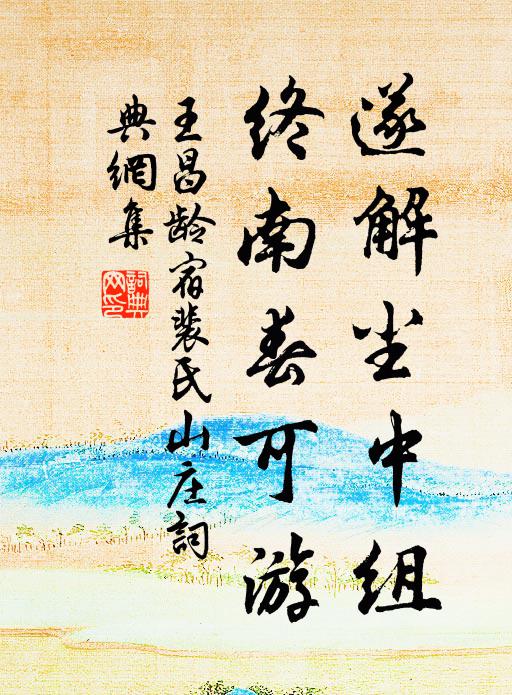 遂解尘中组
终南春可游
王昌龄宿裴氏山庄詞
典網集
詞典网印